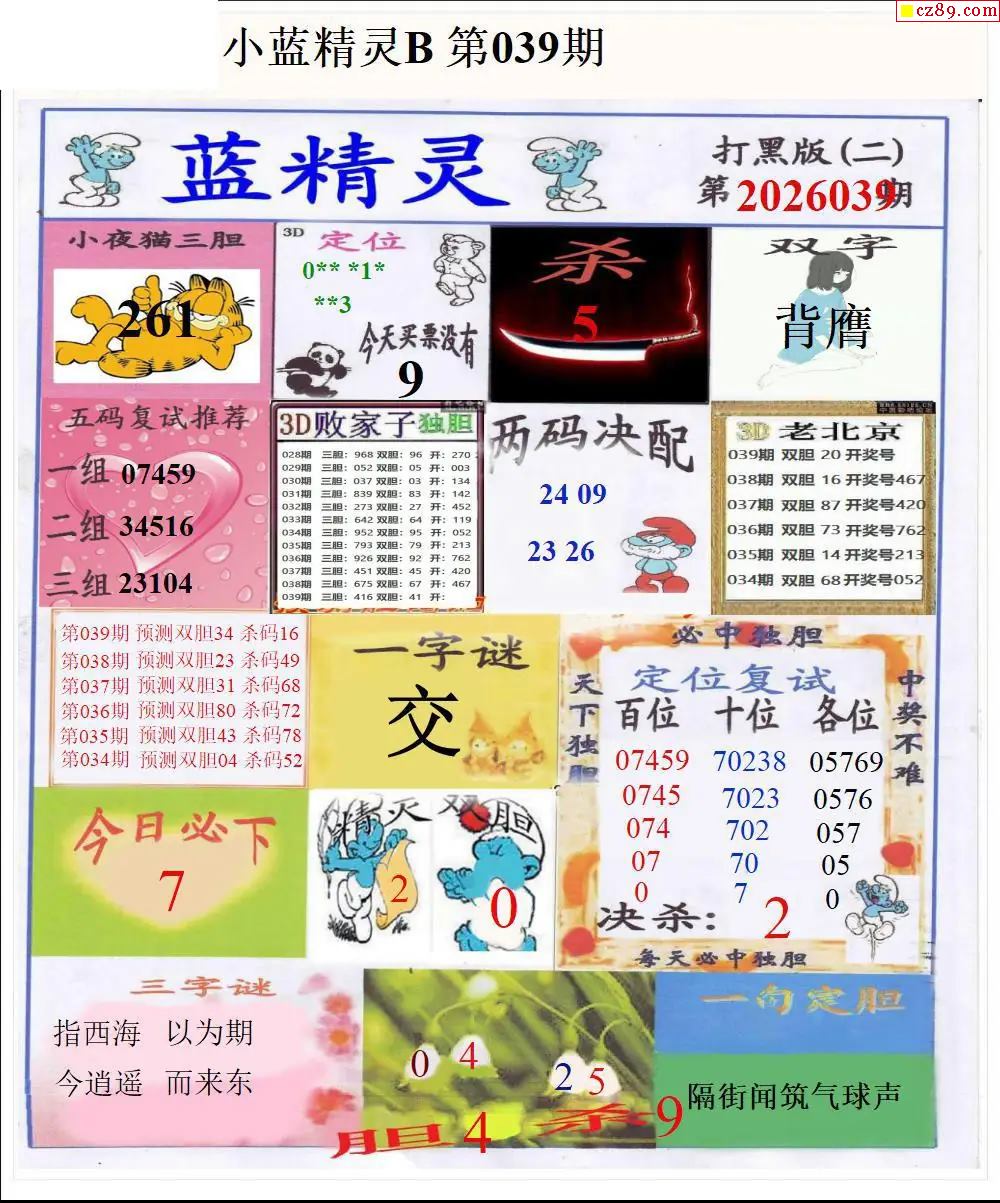 cz89.com
小蓝精灵B 第039期
蓝精灵
打黑版(二)
第2026039期
小夜猫三胆
261
3D 定位
0** *1*
**3
今天买票没有
9
杀
5
双字
背膺
五码复试推荐
一组 07459
二组 34516
三组 23104
3D败家子独胆
028期 三胆：968 双胆：96 开：270
029期 三胆：052 双胆：05 开：003
030期 三胆：037 双胆：03 开：134
031期 三胆：839 双胆：83 开：142
032期 三胆：273 双胆：27 开：452
033期 三胆：642 双胆：64 开：119
034期 三胆：952 双胆：95 开：052
035期 三胆：793 双胆：79 开：213
036期 三胆：926 双胆：92 开：762
037期 三胆：451 双胆：45 开：420
038期 三胆：675 双胆：67 开：467
039期 三胆：416 双胆：41 开：
两码决配
24 09
23 26
3D 老北京
039期 双胆 20 开奖号
038期 双胆 16 开奖号467
037期 双胆 87 开奖号420
036期 双胆 73 开奖号762
035期 双胆 14 开奖号213
034期 双胆 68 开奖号052
第039期 预测双胆34 杀码16
第038期 预测双胆23 杀码49
第037期 预测双胆31 杀码68
第036期 预测双胆80 杀码72
第035期 预测双胆43 杀码78
第034期 预测双胆04 杀码52
一字谜
交
必中独胆
天下独胆
中奖不难
定位复试
百位 十位 各位
07459 70238 05769
0745 7023 0576
074 702 057
07 70 05
0 7 0
决杀：2
每天必中独胆
今日必下
7
精灵 双胆
2 0
三字谜
指西海 以为期
今逍遥 而来东
0 4 2 5
胆4 杀9
一句定胆
隔街闻筑气球声